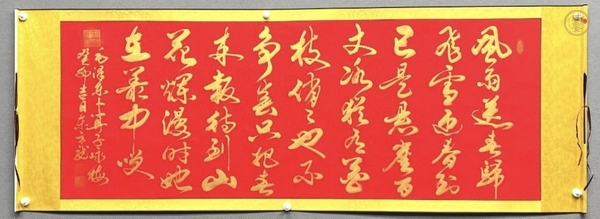 風雨送春歸
飛雪迎春到
已是悬崖百
丈冰猶有花
枝俏〻也不
争春只把春
来報待到山
花爛漫时她
在叢中笑
毛澤东卜算子咏梅
癸卯